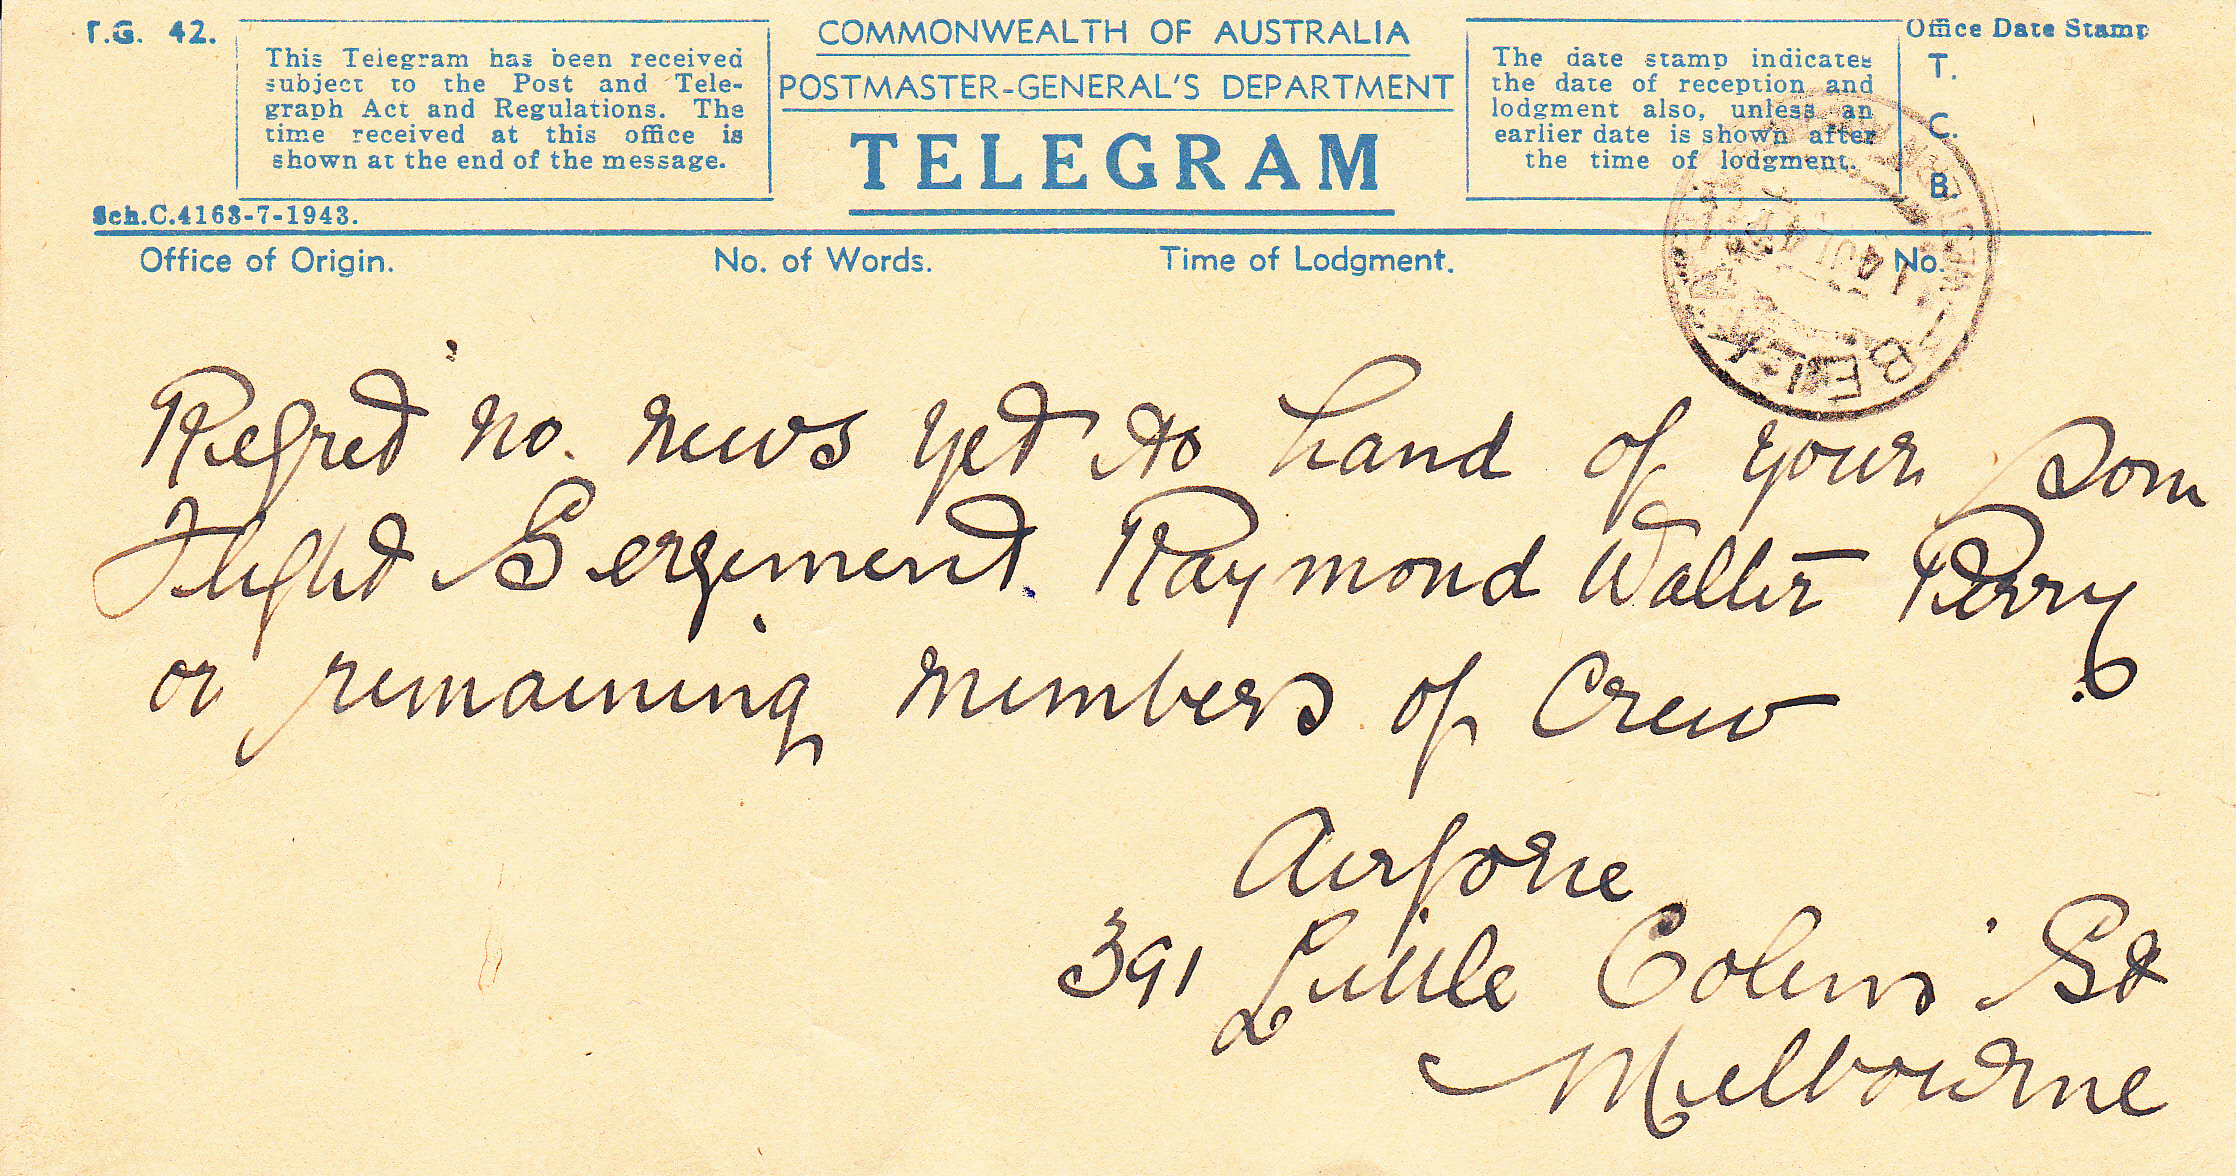 T.G. 42.
This Telegram has been received
subject to the Post and Tele-
graph Act and Regulations. The
time received at this office is
shown at the end of the message.
Sch.C.4163-7-1943.
COMMONWEALTH OF AUSTRALIA
POSTMASTER-GENERAL'S DEPARTMENT
TELEGRAM
The date stamp indicates
the date of reception and
lodgment also, unless an
earlier date is shown after
the time of lodgment.
Office Date Stamp
T.
C.
B.
Office of Origin. No. of Words. Time of Lodgment. No.
Regret no news yet to hand of your Son
Flight Sergement. Raymond Walter Perry
or remaining members of Crew
Airforce
391 Little Colins St
Melbourne